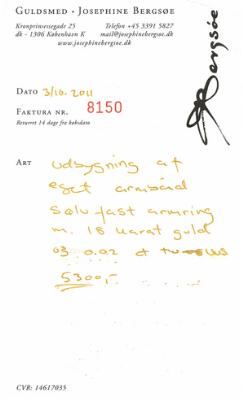 Guldsmed · Josephine Bergsøe
Kronprinsessegade 25 Telefon +45 3391 5827
dk - 1306 København K mail@josephinebergsoe.dk
www.josephinebergsoe.dk
Bergsøe
Dato 3/10. 2011
Faktura nr. 8150
Returret 14 dage fra købsdato
Art udbygning af
eget armbånd
sølv fast armring
m. 18 karat guld
og 0.02 ct tw vs
5300,-
CVR: 14617035